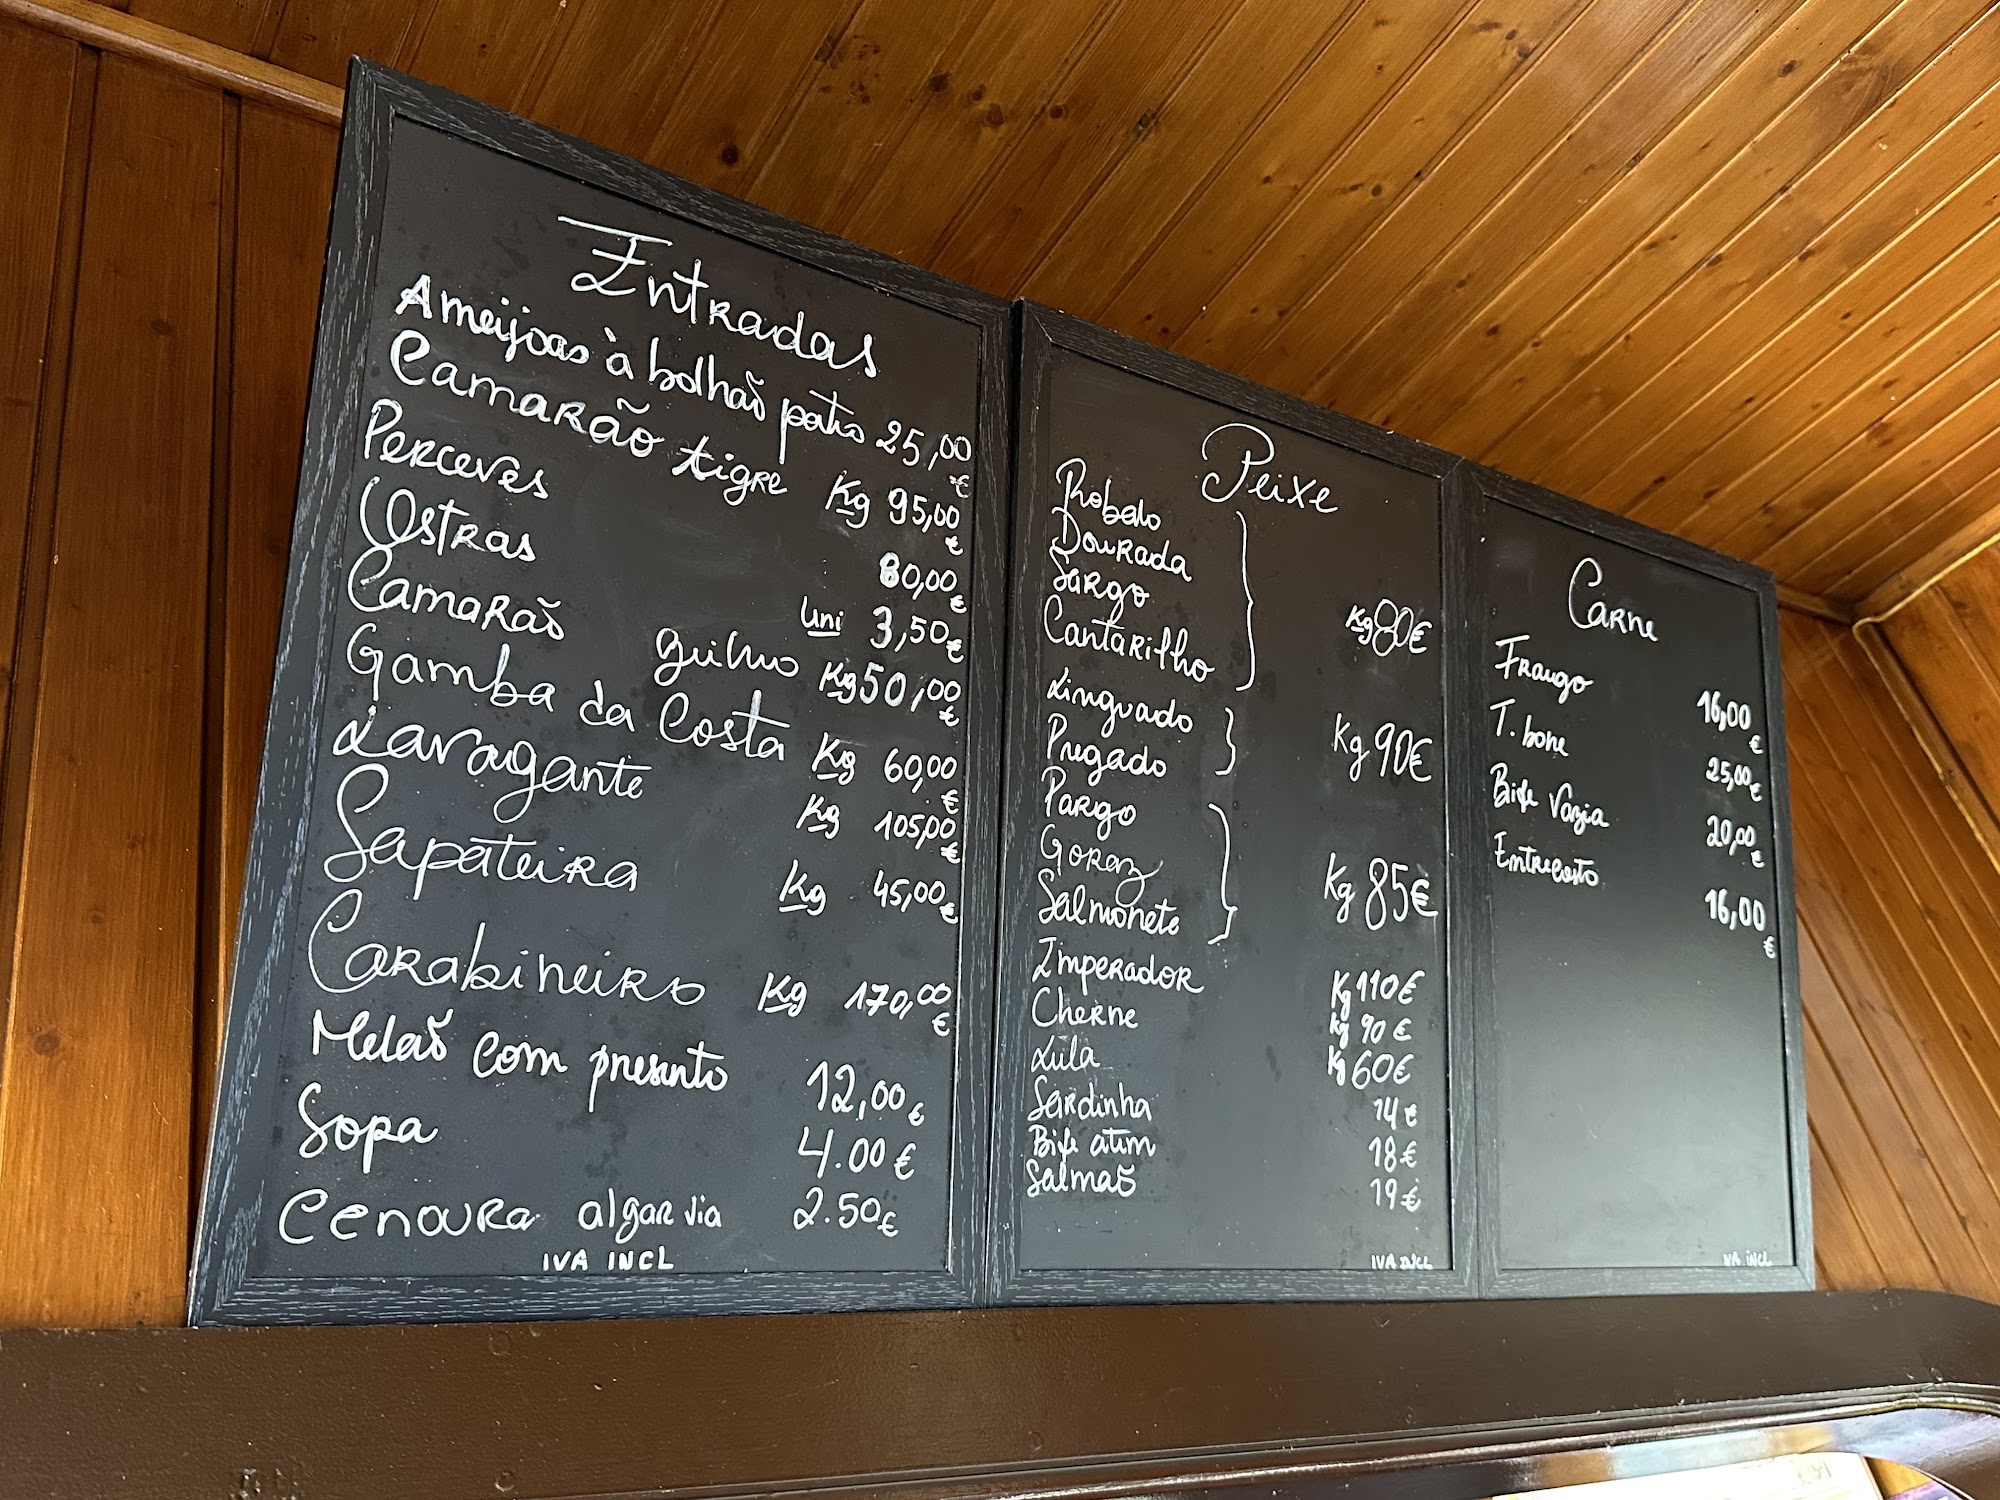 Entradas
Ameijoas à bolhão patio 25,00 €
Camarão tigre Kg 95,00 €
Perceves 80,00 €
Ostras uni 3,50 €
Camarão guilho Kg 50,00 €
Gamba da Costa Kg 60,00 €
Lavagante Kg 105,00 €
Sapateira Kg 45,00 €
Carabineiro Kg 170,00 €
Melão com presunto 12,00 €
Sopa 4.00 €
Cenoura algarvia 2.50 €
IVA INCL
Peixe
Robalo
Dourada
Sargo
Cantarilho
Kg 80 €
Linguado
Pregado
Kg 90 €
Pargo
Goraz
Salmonete
Kg 85 €
Imperador Kg 110 €
Cherne Kg 90 €
Lula Kg 60 €
Sardinha 14 €
Bife atum 18 €
Salmão 19 €
IVA INCL
Carne
Frango 16,00 €
T. bone 25,00 €
Bife Vazia 20,00 €
Entrecosto 16,00 €
IVA INCL